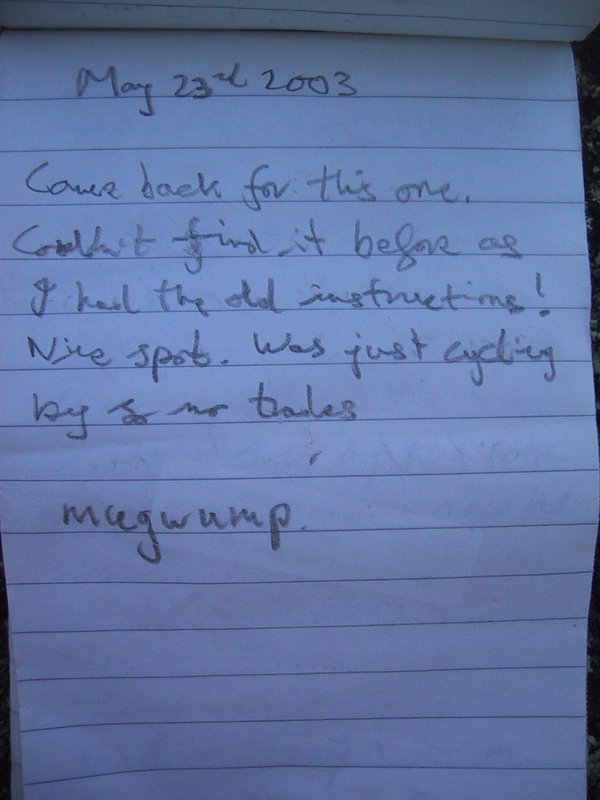 May 23rd 2003
Came back for this one.
Couldn't find it before as
I had the old instructions!
Nice spot. Was just cycling
by so no trades
mugwump.